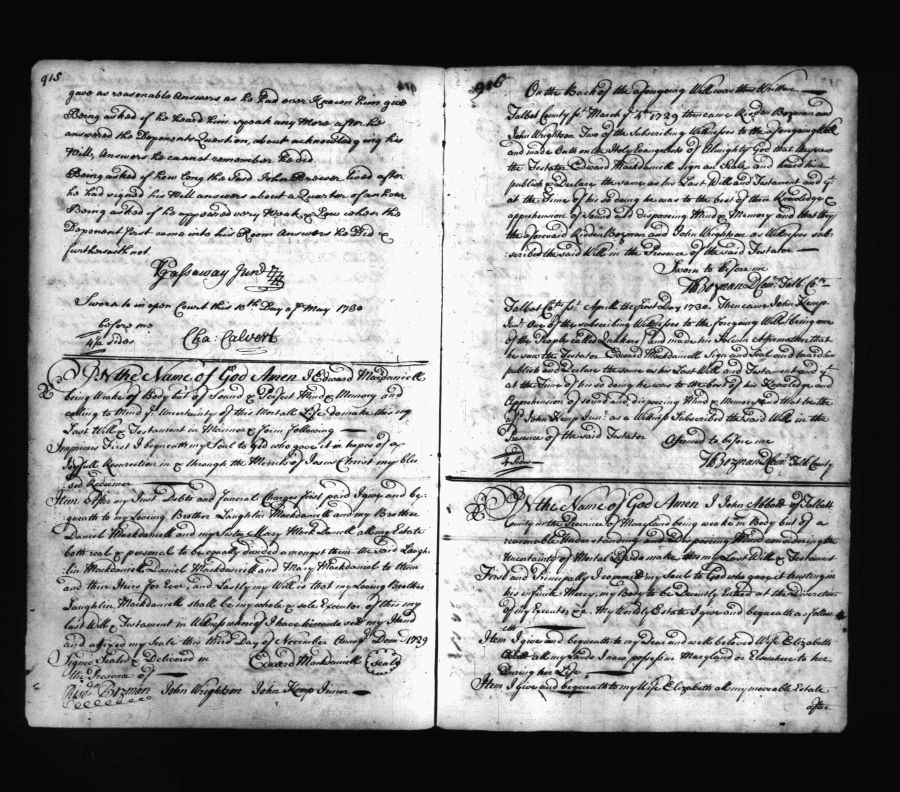 915
gave as reasonable Answers as he had ever Known him give
Being asked if he heard him speak any More after he
answered the Deponents Question, about acknowledging his
Will, Answers he cannot remember he did
Being asked if how long the said John Brewer Lived after
he had signed his Will answers about a Quarter of an hour
Being asked if he appeared very Weak & Low when the
Deponent first came into his Room Answers he Did &
further saith not.
Gassaway Junr
Sworn to in open Court this 10th Day of May 1730
before me
4½ sides Cha: Calvert
IN the Name of God Amen I Edward Mackdaniell
being Weake of Body but of Sound & Perfect Mind & Memory and
calling to Mind ye Uncertainty of this Mortall Life do make this my
Last Will & Testament in Manner & form following
Imprimis First I bequeath my Soul to God who gave it in hopes of a
Joyfull Resurection & through the Merits of Jesus Christ my bles
sed Redeemer
Item After my Just Debts and funeral Charges first paid I give and be-
queath to my Loveing Brother Laughlin Mackdaniell and my Brother
Daniel Mackdaniell and my Sister Mary Mackdaniell all my Estate
both real & personal to be equally divided amongst them the said Laugh-
lin Mackdaniell Daniel Mackdaniell and Mary Mackdaniel to them
and their Heirs for Ever, and Lastly my Will is that my Loving Brother
Laughlin Mackdaniell shall be my whole & sole Executor of this my
last Will & Testament in Witness whereof I have hereunto set my Hand
and afixed my Seale this third Day of November Annoq Dom 1729
Signed Sealed & Delivered in Edward Mackdaniell (Seal)
the Presence of
Rid: Bozman John Wrightson John Kemp Junior
916
On the Back of the aforegoing Will was thus Written
Talbot County ss. March ye 4th 1729 then came Risdon Bozman and
John Wrightson Two of the Subscribing Witnesses to the aforegoing Will
and made Oath on the Holy Evangelists of Almighty God that they saw
the Testator Edward Mackdaniell Sign and Seale and heard him
publish & Declare the same as his Last Will and Testament and yt
at the Time of his so doing he was to the best of their Knowledge &
apprehension of Sound & disposing Mind & Memory and that they
the aforesaid Risdon Bozman and John Wrightson as Witnesses sub-
scribed the said Will in the Presence of the said Testator
Sworn to before me
T Bozman D Com: Talb. Coty
Talbot Coty ss. Aprill the first Day 1730. Then came John Kemp
Junr. One of the subscribing Witnesses to the foregoing Will (being one
of the People called Quakers) and made his Solemn Affirmation that
he saw the Testator Edward Mackdaniell Sign and Seal and heard him
publish and Declare the same as his Last Will and Testament and yt
at the Time of his so doing he was to the best of his Knowledge and
Apprehension of sound and disposing Mind & Memory and that he the
sd John Kemp Junr. as a Witness Subscribed the said Will in the
Presence of the said Testator Afirmed to before me
4 sides T Bozman D Com: Talb County
IN the Name of God Amen I John Abbott of Talbott
County in the Province of Maryland being weake in Body but of a
reasonable Understanding and disposing Mind considering the
Uncertainty of Mortal Life do make this my Last Will & Testament
First and Principally I commit my Soul to God who gave it trusting in
his infinite Mercy, my Body to be Decently Buried at the Discretion
of my Executor &c. My Worldly Estate I give and bequeath as follow-
eth
Item I give and bequeath to my Dear and well beloved Wife Elizabeth
Abbott all my Lands I now possess in Maryland or Elsewhere to her
During her Life
Item I give and bequeath to my Wife Elizabeth all my moveable Estate
after